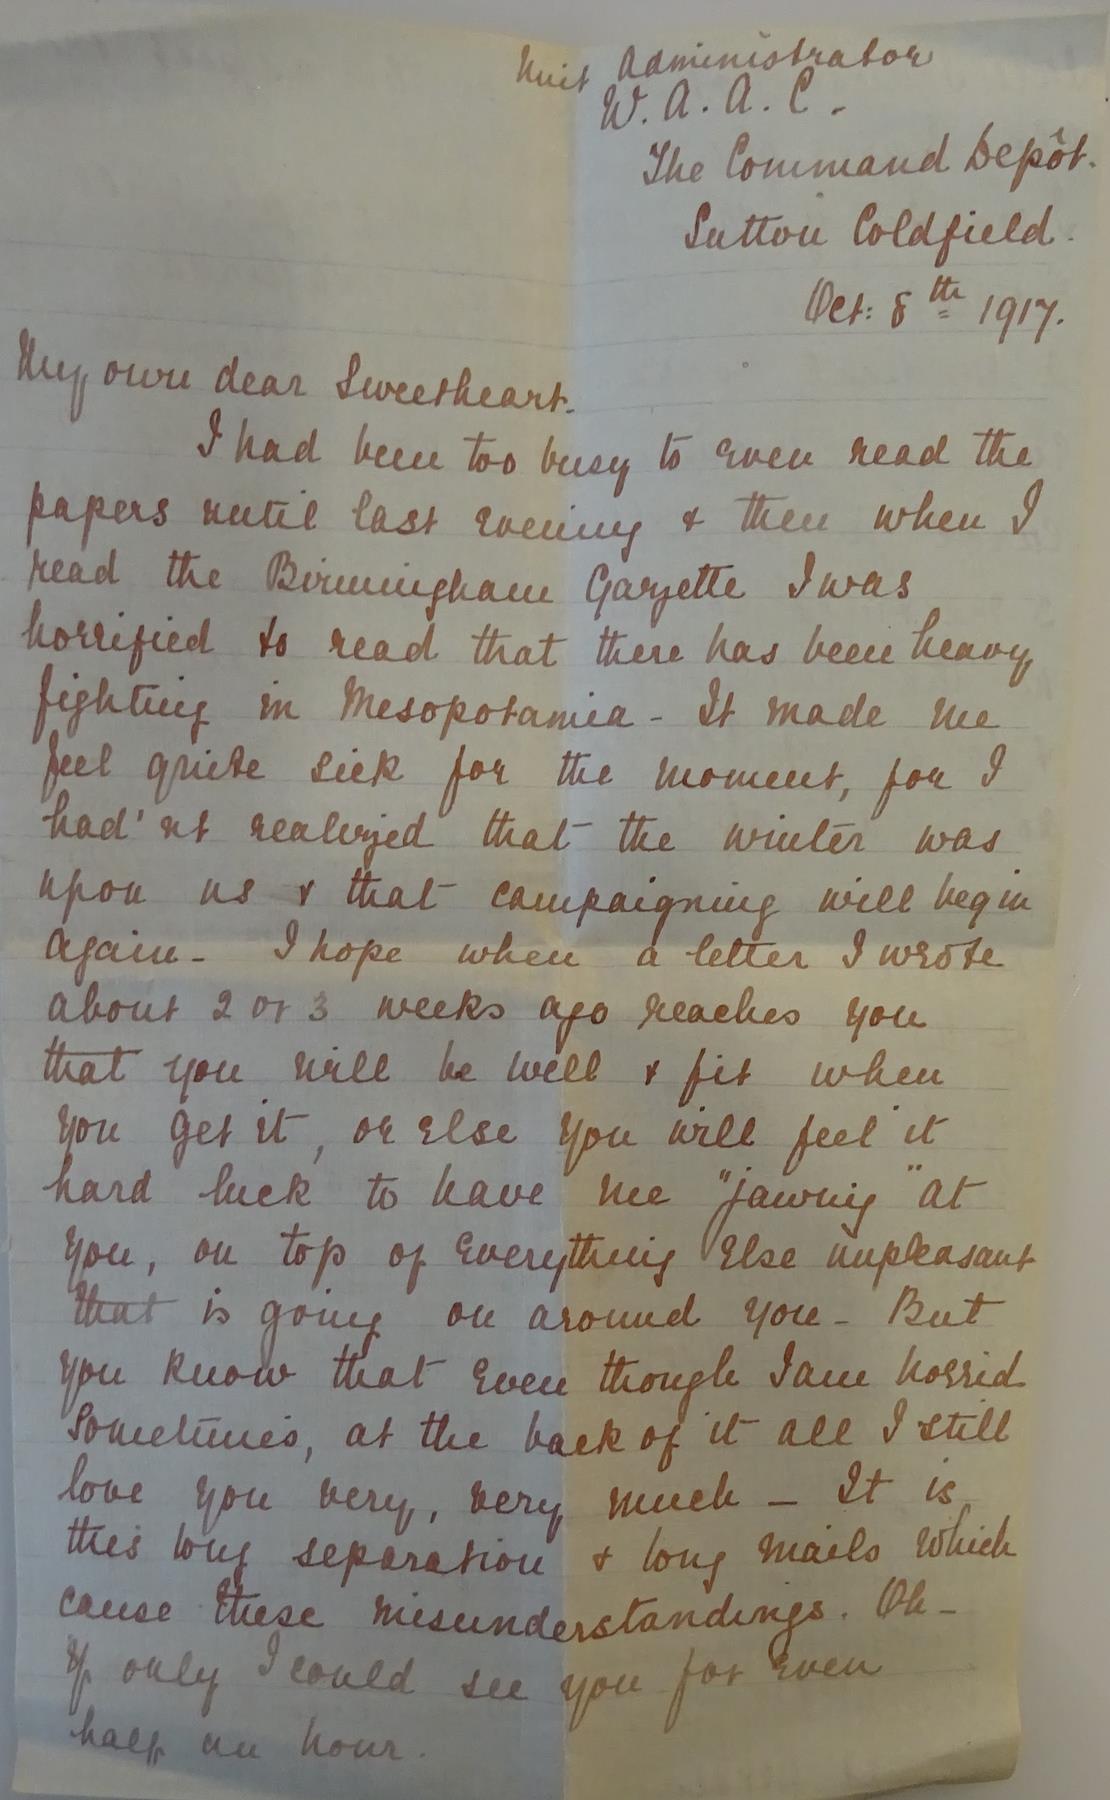 Unit Administrator
W. A. A. C.
The Command Depôt.
Sutton Coldfield.
Oct: 8th 1917.
My own dear Sweetheart.
I had been too busy to even read the
papers until last evening & then when I
read the Birmingham Gazette I was
horrified to read that there has been heavy
fighting in Mesopotamia - It made me
feel quite sick for the moment, for I
had'nt realized that the winter was
upon us & that campaigning will begin
again - I hope when a letter I wrote
about 2 or 3 weeks ago reaches you
that you will be well & fit when
you get it, or else you will feel it
hard luck to have me "jawing" at
you, on top of everything else unpleasant
that is going on around you - But
you know that even though I am horrid
sometimes, at the back of it all I still
love you very, very much - It is
this long separation & long mails which
cause these misunderstandings. Oh -
if only I could see you for even
half an hour.